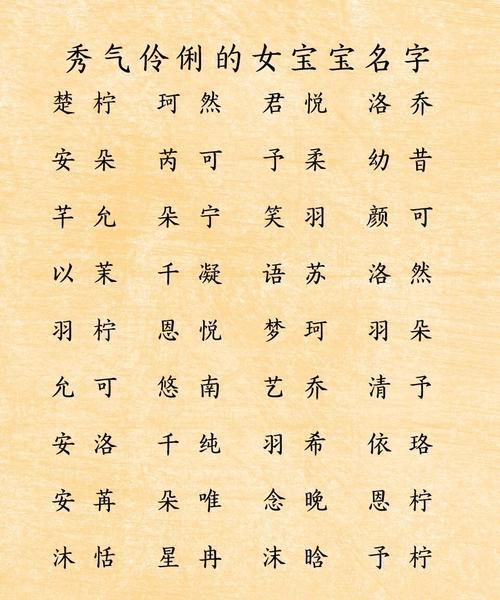 秀气伶俐的女宝宝名字
楚柠 珂然 君悦 洛乔
安朵 芮可 予柔 幼昔
芊允 朵宁 笑羽 颜可
以茉 千凝 语苏 洛然
羽柠 恩悦 梦珂 羽朵
允可 悠南 艺乔 清予
安洛 千纯 羽希 依珞
安苒 朵唯 念晚 恩柠
沐恬 星冉 沫晗 予柠